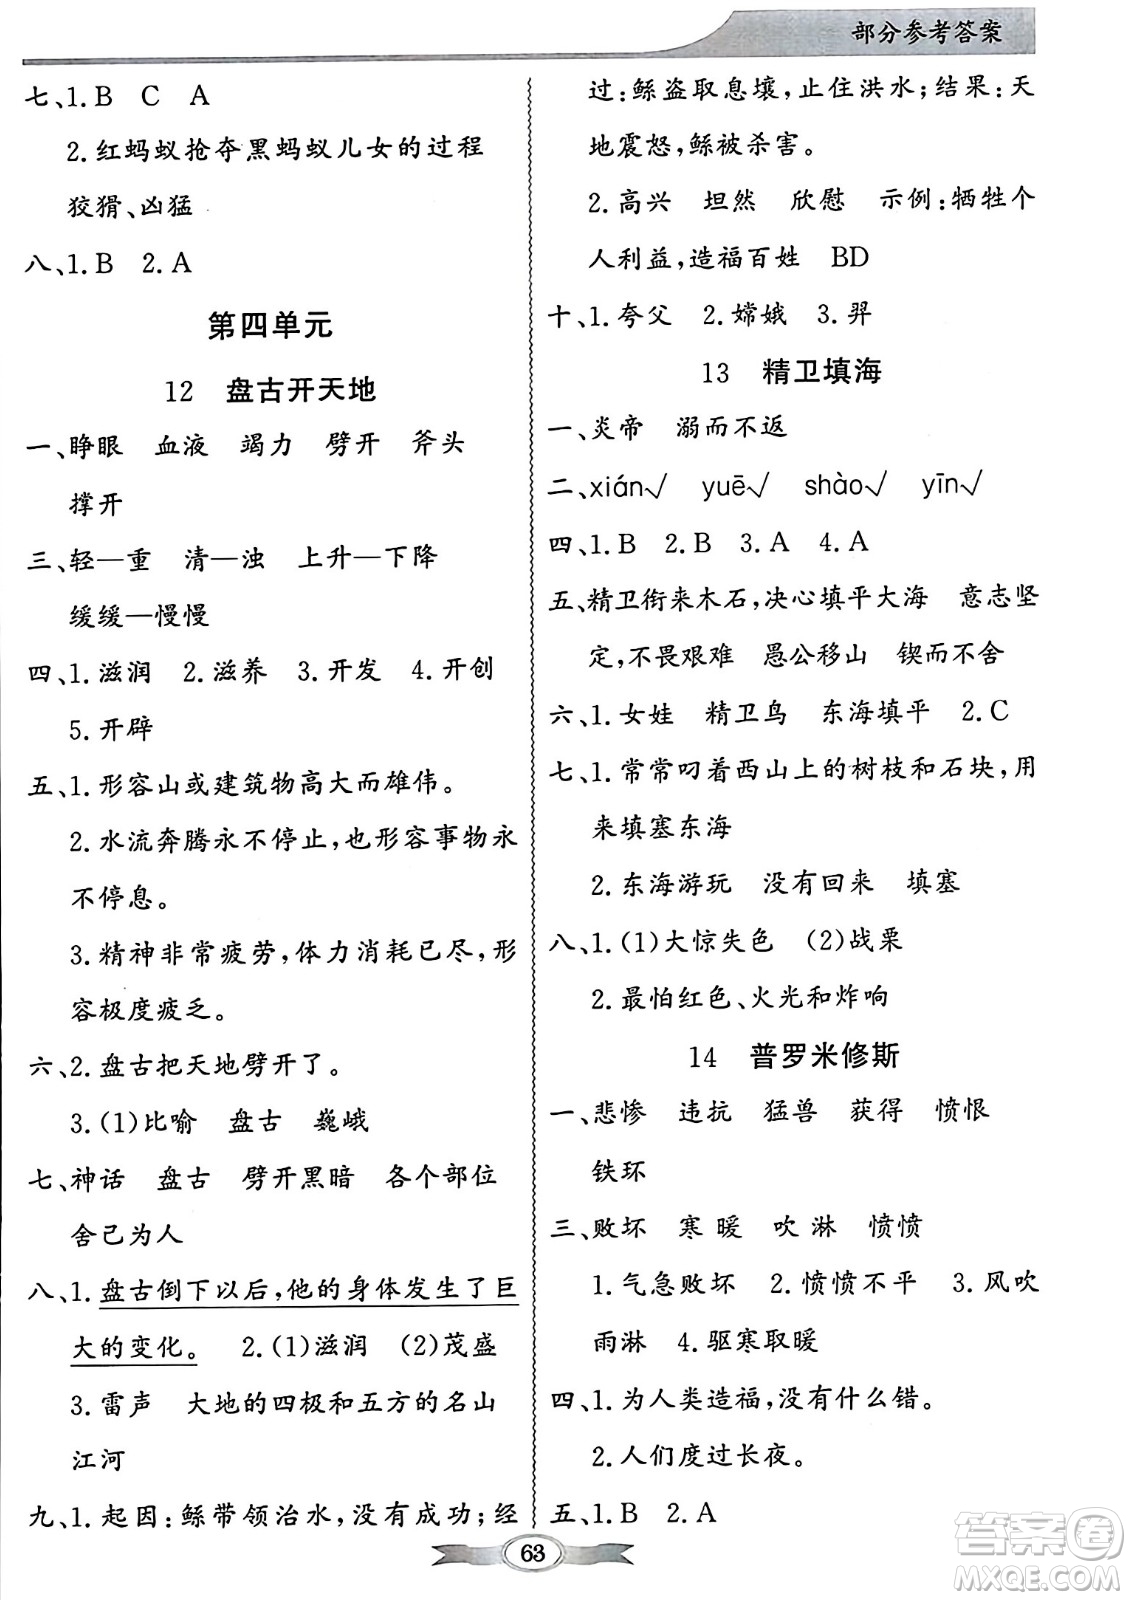 部分参考答案
七、1.B C A
2.红蚂蚁抢夺黑蚂蚁儿女的过程
狡猾、凶猛
八、1.B 2.A
第四单元
12 盘古开天地
一、睁眼 血液 竭力 劈开 斧头
撑开
三、轻—重 清—浊 上升—下降
缓缓—慢慢
四、1.滋润 2.滋养 3.开发 4.开创
5.开辟
五、1.形容山或建筑物高大而雄伟。
2.水流奔腾永不停止,也形容事物永
不停息。
3.精神非常疲劳,体力消耗已尽,形
容极度疲乏。
六、2.盘古把天地劈开了。
3.(1)比喻 盘古 巍峨
七、神话 盘古 劈开黑暗 各个部位
舍己为人
八、1.盘古倒下以后,他的身体发生了巨
大的变化。 2.(1)滋润 (2)茂盛
3.雷声 大地的四极和五方的名山
江河
九、1.起因:鲧带领治水,没有成功;经
过:鲧盗取息壤,止住洪水;结果:天
地震怒,鲧被杀害。
2.高兴 坦然 欣慰 示例:牺牲个
人利益,造福百姓 BD
十、1.夸父 2.嫦娥 3.羿
13 精卫填海
一、炎帝 溺而不返
二、xián√ yuē√ shào√ yīn√
四、1.B 2.B 3.A 4.A
五、精卫衔来木石,决心填平大海 意志坚
定,不畏艰难 愚公移山 锲而不舍
六、1.女娃 精卫鸟 东海填平 2.C
七、1.常常叼着西山上的树枝和石块,用
来填塞东海
2.东海游玩 没有回来 填塞
八、1.(1)大惊失色 (2)战栗
2.最怕红色、火光和炸响
14 普罗米修斯
一、悲惨 违抗 猛兽 获得 愤恨
铁环
三、败坏 寒暖 吹淋 愤愤
1.气急败坏 2.愤愤不平 3.风吹
雨淋 4.驱寒取暖
四、1.为人类造福,没有什么错。
2.人们度过长夜。
五、1.B 2.A
63
答案圈
MXQE.COM